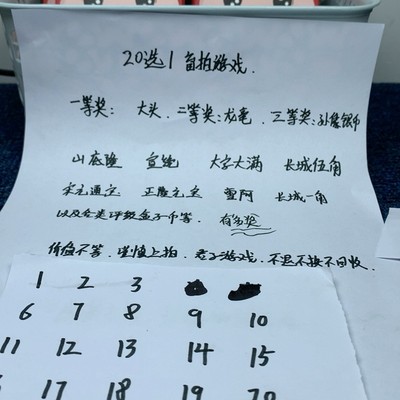 20选1 盲拍游戏.
一等奖: 大头. 二等奖:龙毫. 三等奖:银币
山底隆 宣统 大字大满 长城伍角
宋元通宝 正隆元宝 雪阿 长城一角
以及各类评级盒子币等.
价值不等. 谨慎上拍. 游戏. 不退不换不回收.
1 2 3
6 7 8 9 10
11 12 13 14 15
17 18 19 20